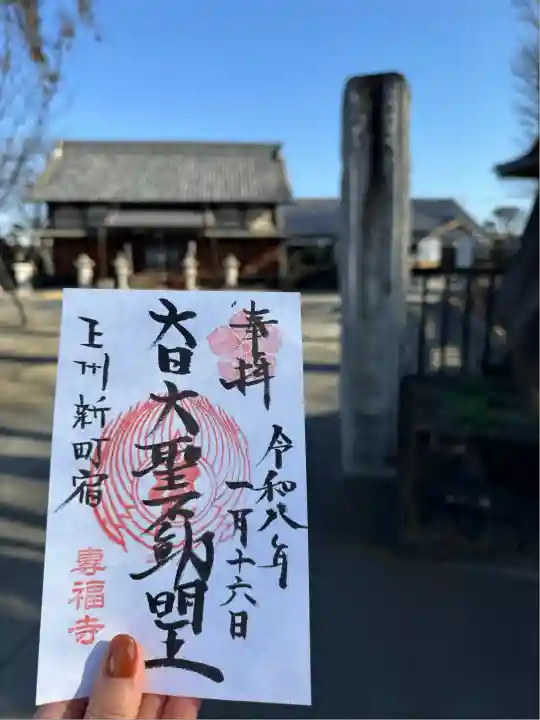 奉拝
令和八年
一月十六日
大日大聖不動明王
上州新町宿
專福寺